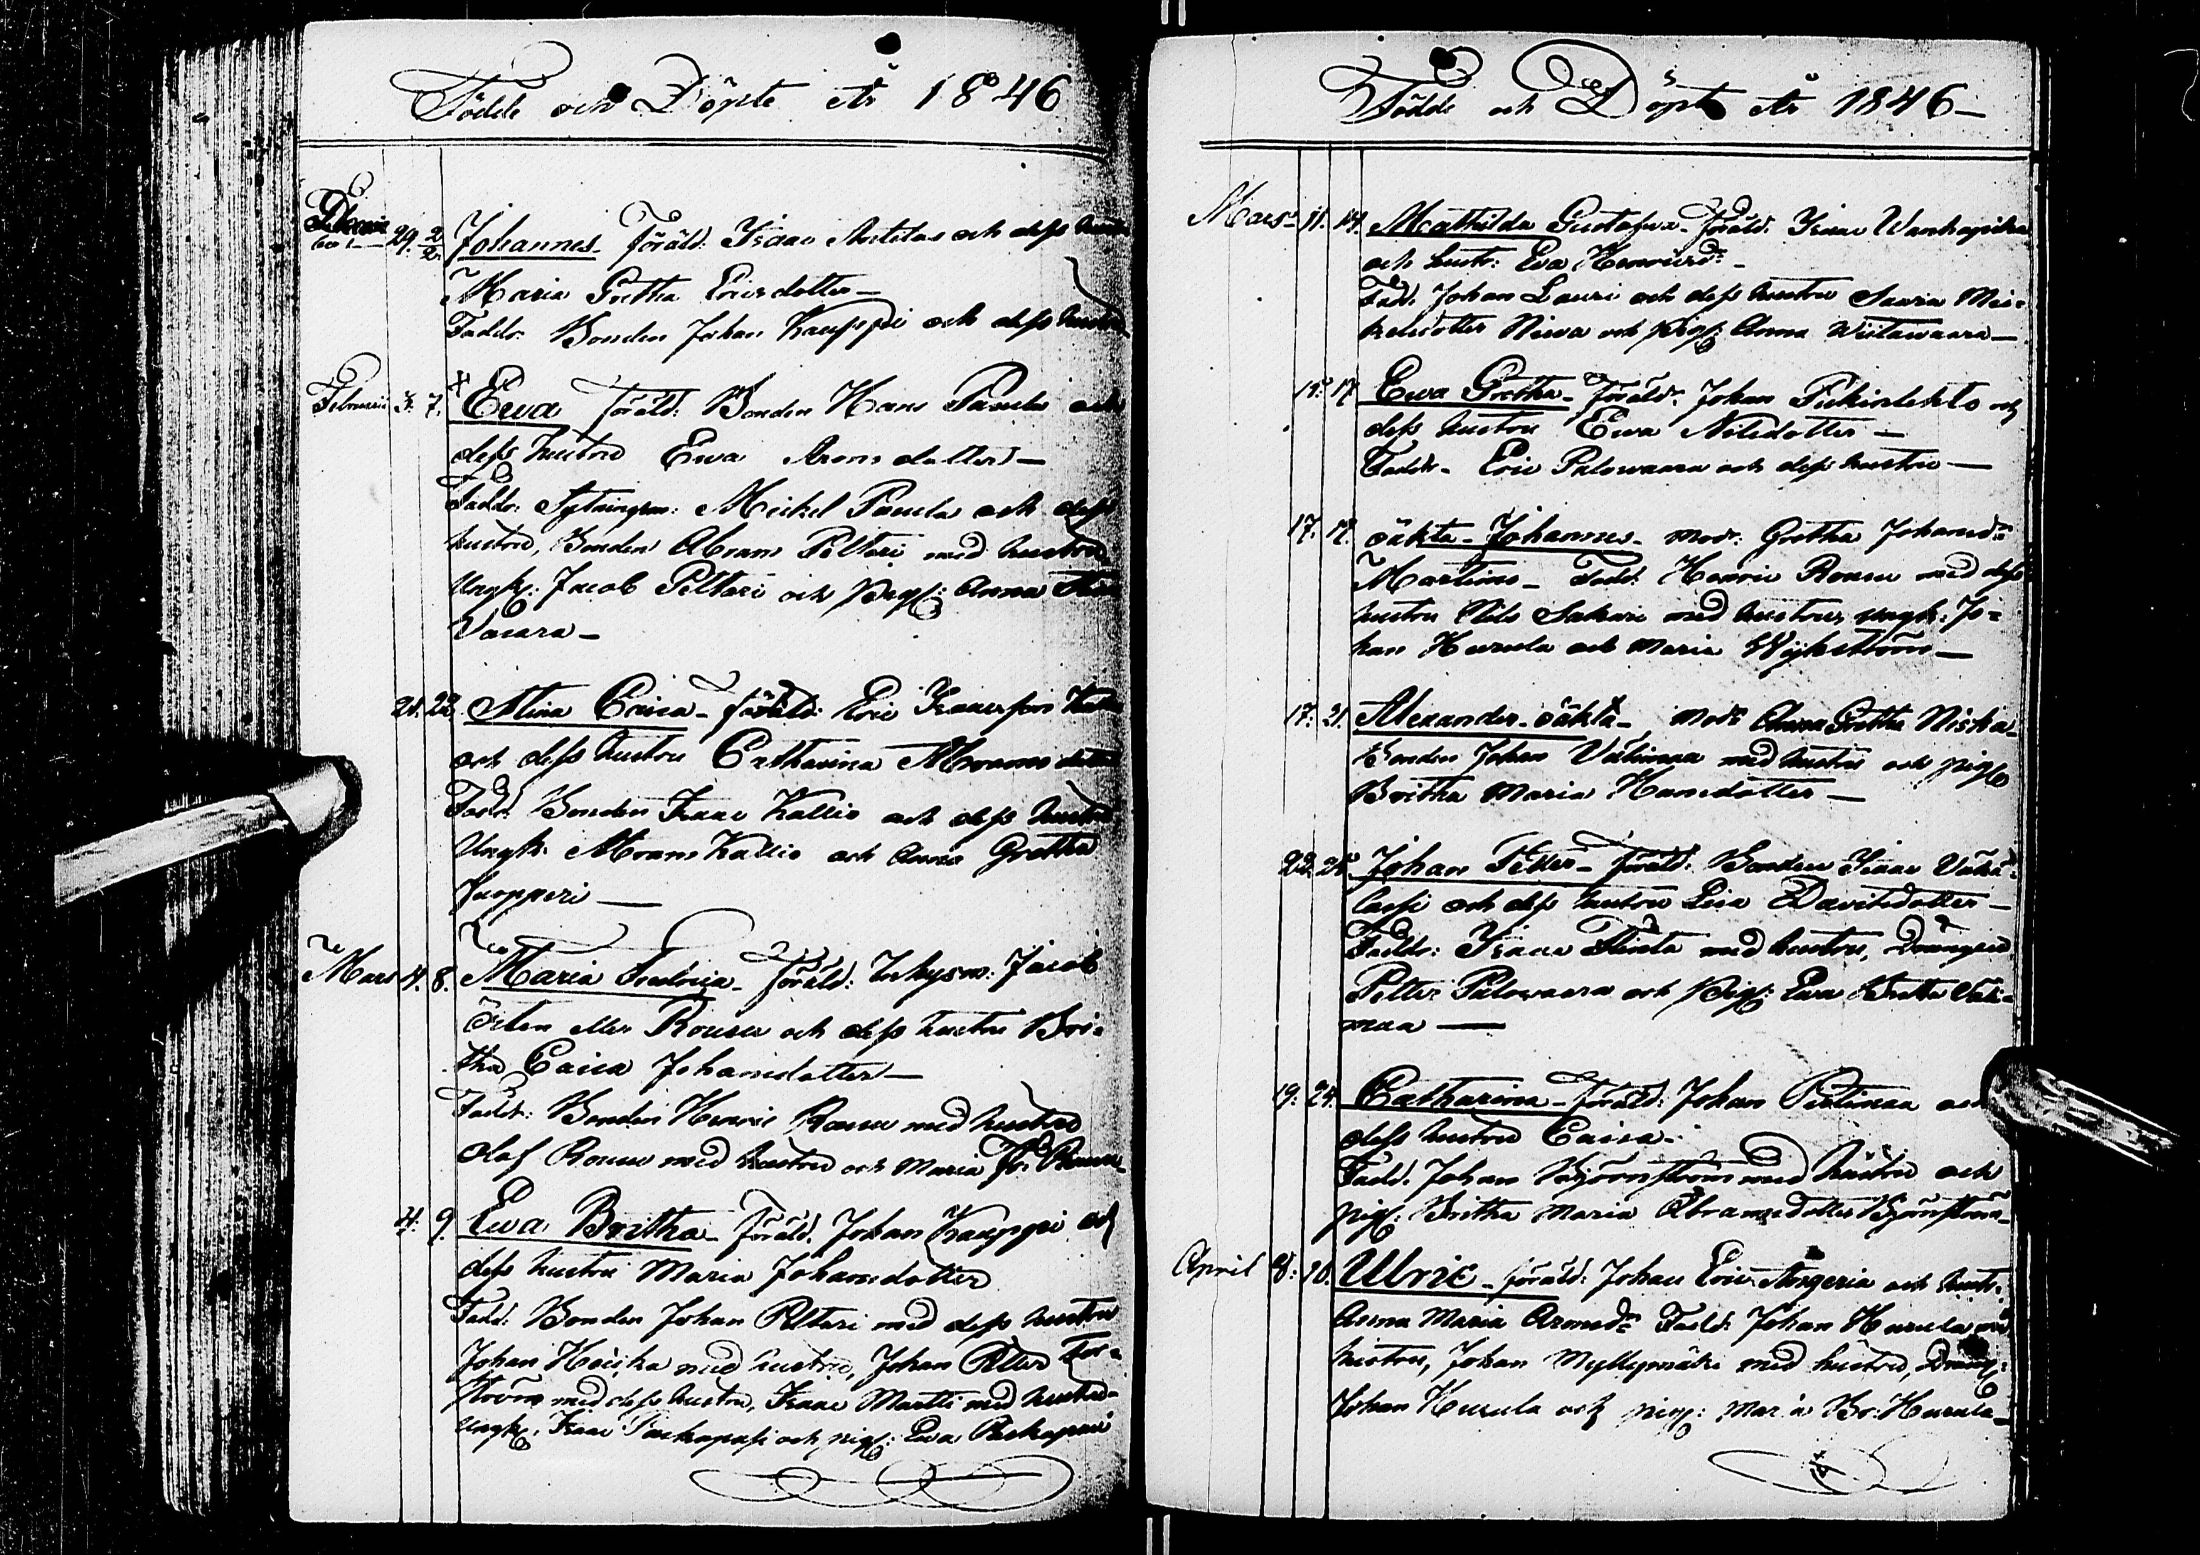 Födde och Döpte År 1846
29. 2/2. Johannes. föräld: Isaac och dess hustru
Maria Gretha Ericsdotter—
Faddr: Bonden Johan Kauppi och dess hustru
Februari 3. 7. Ewa föräld: Bonden Hans Paulus och
dess hustru Ewa Aronsdotter—
Faddr: Mickel och dess
hustru, Bonden Abram Peltari med hustru
Ungk: Jacob Peltari och Pig: Anna
Vaara—
21. 22. Stina Caisa— föräld: Eric Isaacsson
och dess hustru Catharina Abrams
Fadd: Bonden Isaac Kallio och dess hustru
Ungk: Abram Kallio och Anna Gretha
Juopperi—
Mars 4. 8. Maria Fredrica— föräld: Inhysm: Jacob
Östen eller Rousu och dess hustru Bri-
tha Caisa Johansdotter—
Faddr: Bonden Henric Rousu med hustru
Olof Rousu med hustru och Maria
4. 9. Ewa Britha— föräld. Johan Kauppi och
dess hustru Maria Johansdotter
Fadd: Bonden Johan Peltari med dess hustru
Johan med hustru, Johan Petter For-
ström med dess hustru, Isaac Martti med hustru-
Ungk: Isaac och pig: Ewa
Födde och Döpte År 1846—
Mars 11. 14. Mathilda Gustafva— föräld: Isaac Wanhapiha
och hustr: Eva Henricsd:r—
Fadd. Johan Lauri och dess hustru Saara Mic-
kelsdotter Niwa och pig: Anna Wiitawaara—
15. 17. Ewa Gretha— föräld: Johan och
dess hustru Ewa Nilsdotter—
Faddr— Eric Palowaara och dess hustru—
17. oäkta— Johannes— mod: Gretha Johansd:r
Martimo— Fadd: Henric Rousu med dess
hustru Nils Sakari med hustru, ungk: Jo-
han Hurula och Maria Wykström—
17. 21. Alexander— oäkta— mod: Anna Gretha Niska—
Bonden Johan Välimaa med hustru och pig
Britha Maria Hansdotter—
22. Johan Petter— föräld: Bonden Isaac
och dess hustru Lisa Davidsdotter—
Faddr: Isaac med hustru, Drängen
Petter Palowaara och Pig: Ewa Britta Väli-
maa—
19. 24. Catharina— föräld: Johan och
dess hustru Caisa—
Fadd. Johan Björnström med hustru och
pig: Britha Maria Abramsdotter Björnström—
April 8. Ulric— föräld: Johan Eric Angeria och hustr:
Anna Maria Aronsd:r Fadd: Johan Hurula med
hustru, Johan Myllymäki med hustru, Dräng:
Johan Hurula och pig: Maria Br: Hurula—